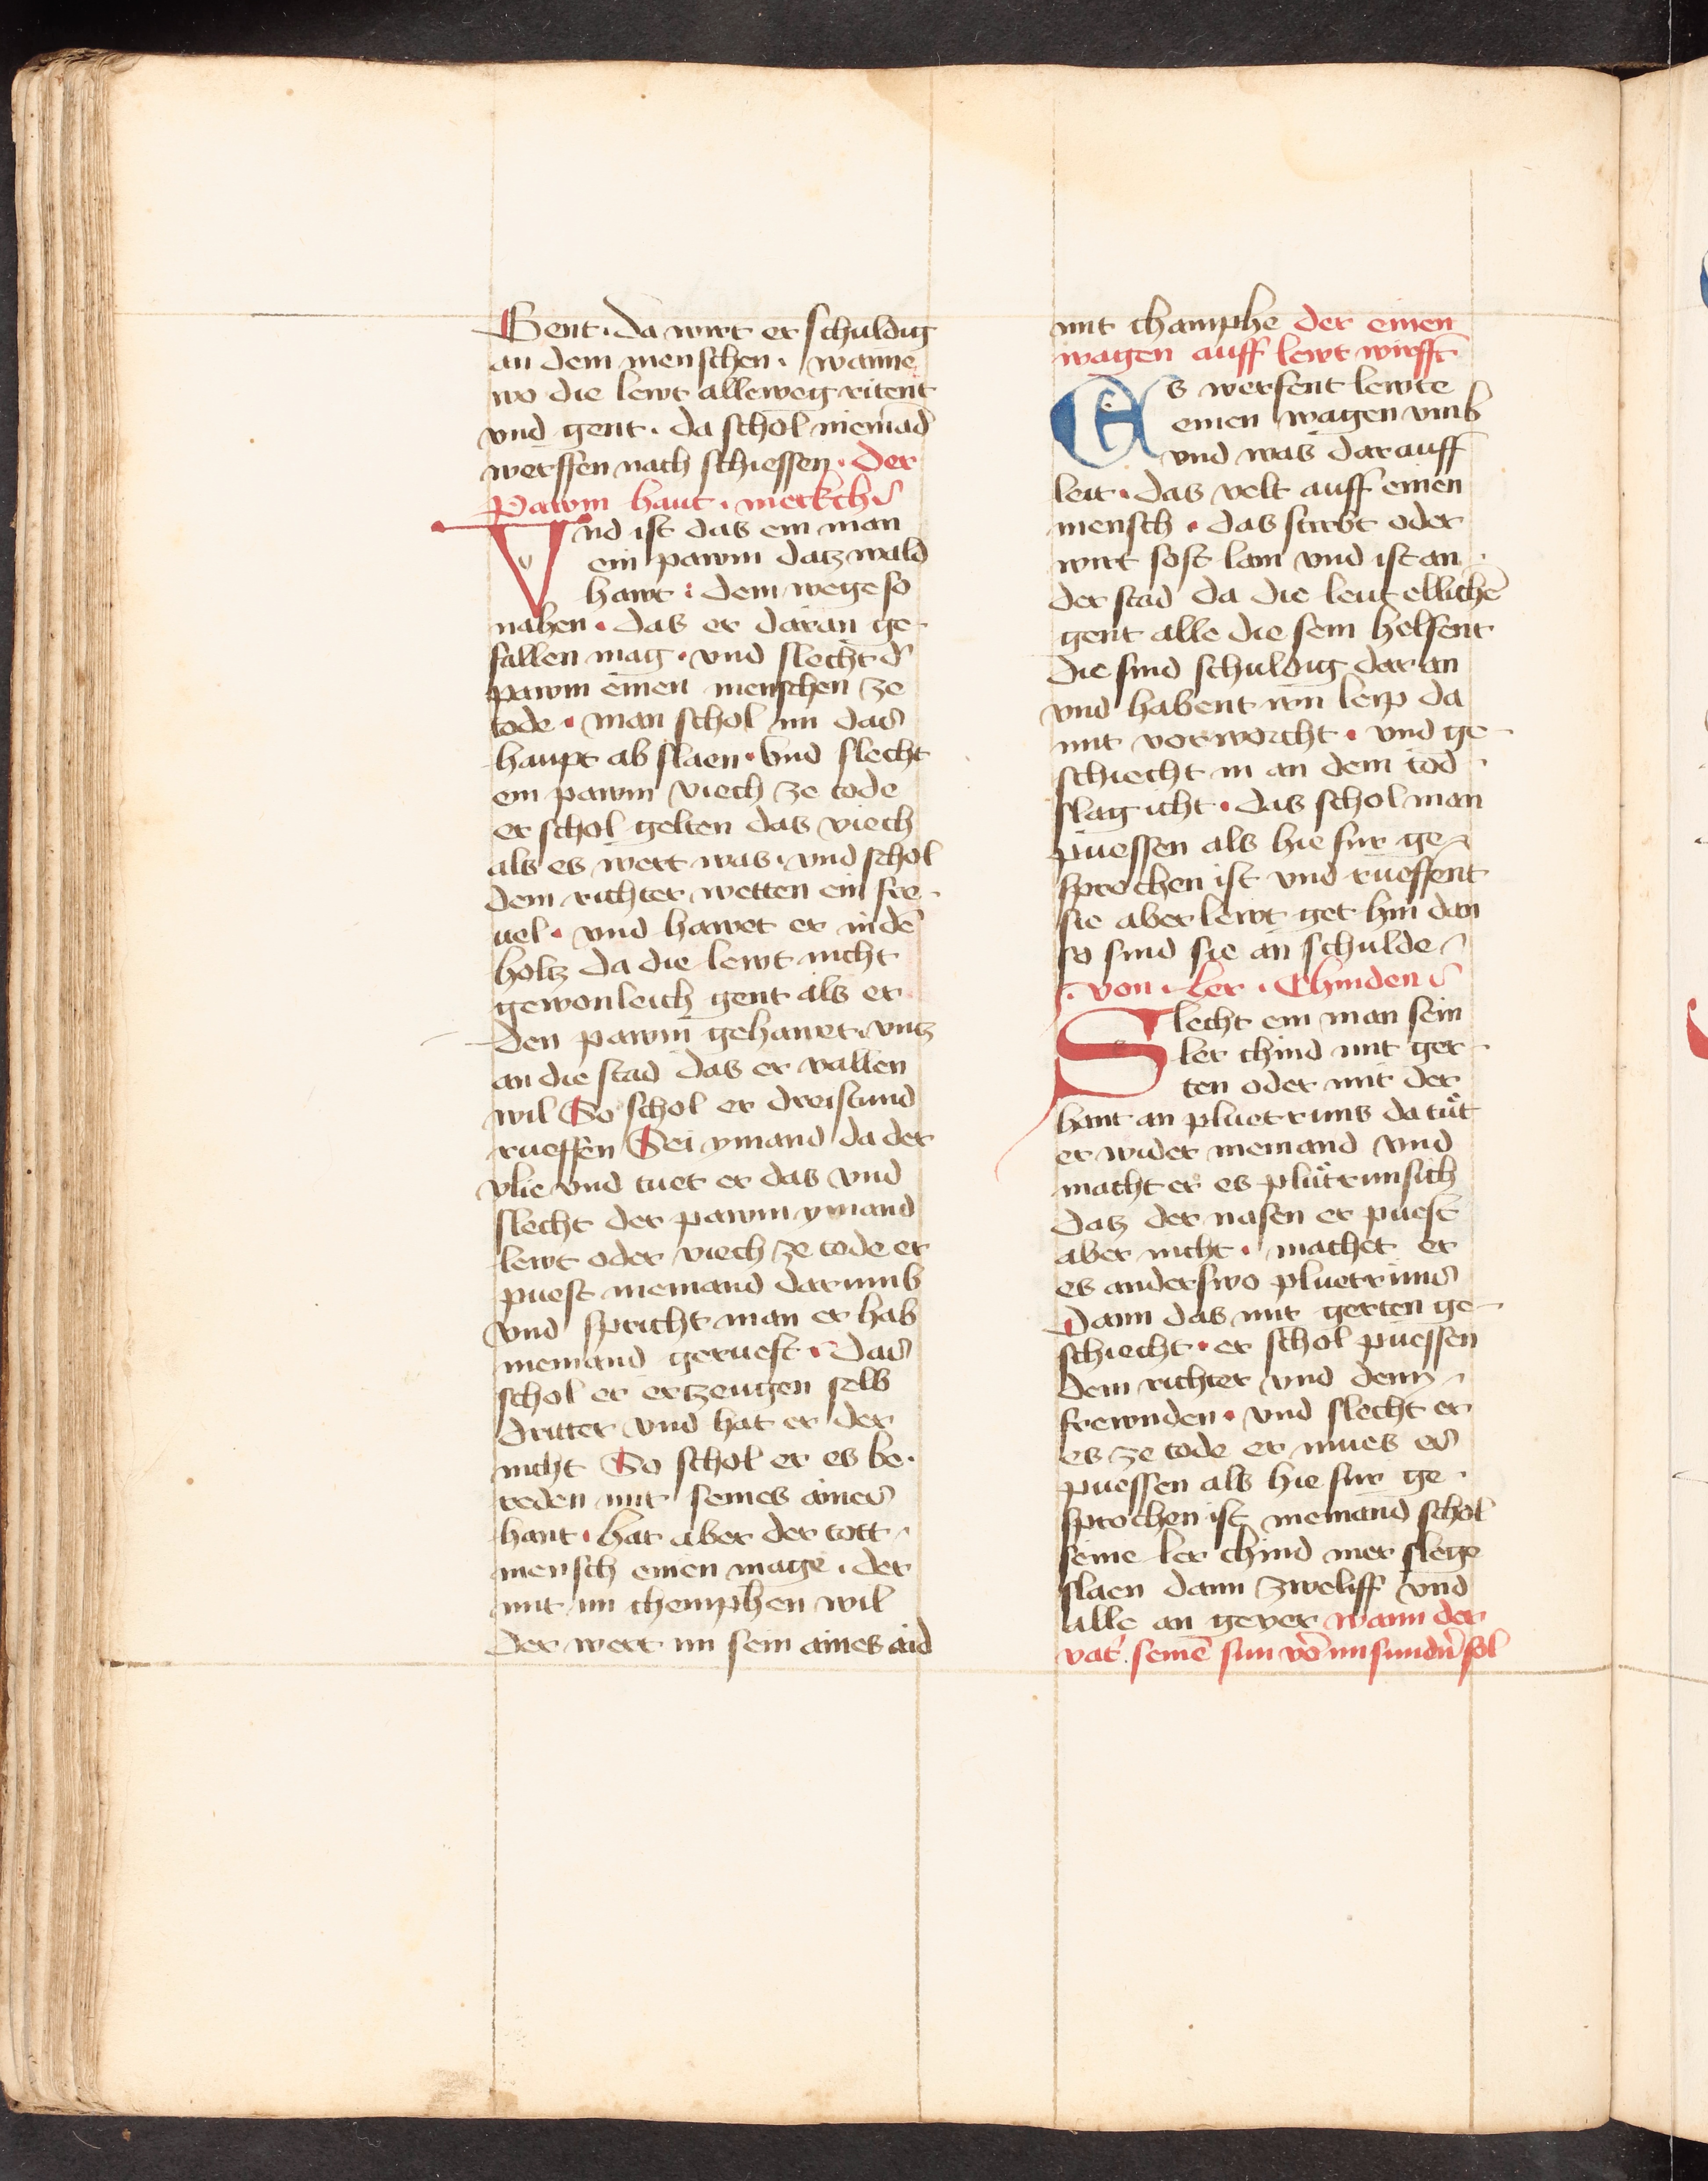 Gent · da wirt er schuldig
an dem menschen · wanne
wo die lewt alleweg ritent
vnd gent · da schol niemād
werffen nach schiessen · der
Pawm haut · merkch
Vnd ist das ein man
ein pawm datz wald
hawt : dem wege so
nahen · das er daran ge
fallen mag · vnd slecht d̕
pawm einen menschen ze
tode · man schol im das
haupt ab slaen · vnd slecht
ein pawm viech ze tode
er schol gelten das viech
als es wert was · vnd schol
dem richter wetten ein fre
uel · vnd hawet er in dē
holtz da die lewt nicht
gewonleich gent als er
den pawm gehawet vntz
an die stad das er vallen
wil So schol er dreistund
rueffen Sei ymand da der
vlie vnd tuet er das vnd
slecht der pawm ymand
lewt oder viech ze tode er
puest niemand darumb
vnd spricht man er hab
niemand gerueft · das
schol er ertzeugen selb
dritter vnd hat er der
nicht So schol er es be·
reden mit seines aines
hant · hat aber der tott
mensch einen mage · der
mit im chemphen wil
der wert im sein aines aid
mit champhe der einen
wagen auff lewt wirfft
Es werfent lewte
einen wagen vmb
vnd was darauff
leit · das velt auff einen
mensch · das stirbt oder
wirt sost lam vnd ist an
der stad da die leut ellichē
gent alle die sem helfent
die sind schuldig dar an
vnd habent irn leip da
mit verworcht · vnd ge
schiecht in an dem tod
slag icht · das schol man
puessen als hie fur ge
sprochen ist vnd rueffent
sie aber lewt get hin dan
so sind sie an schulde
· von · ler · Chinden
Slecht ein man sein
ler chind mit ger
ten oder mit der
hant an pluetruns da tuͤt
er wider niemand vnd
macht er es pluͤtrunsich
datz der nasen er puest
aber nicht · machet er
es anderswo pluetruns
dann das mit gerten ge
schiecht · er schol puessen
dem richter vnd den
frewnden · vnd slecht er
es ze tode er mues es
puessen als hie fur ge
sprochen ist niemand schol
seine ler chind mer slege
slaen dann zweliff vnd
alle an gever wann der
vat̕ seinē sun vō im sundn̄ sol